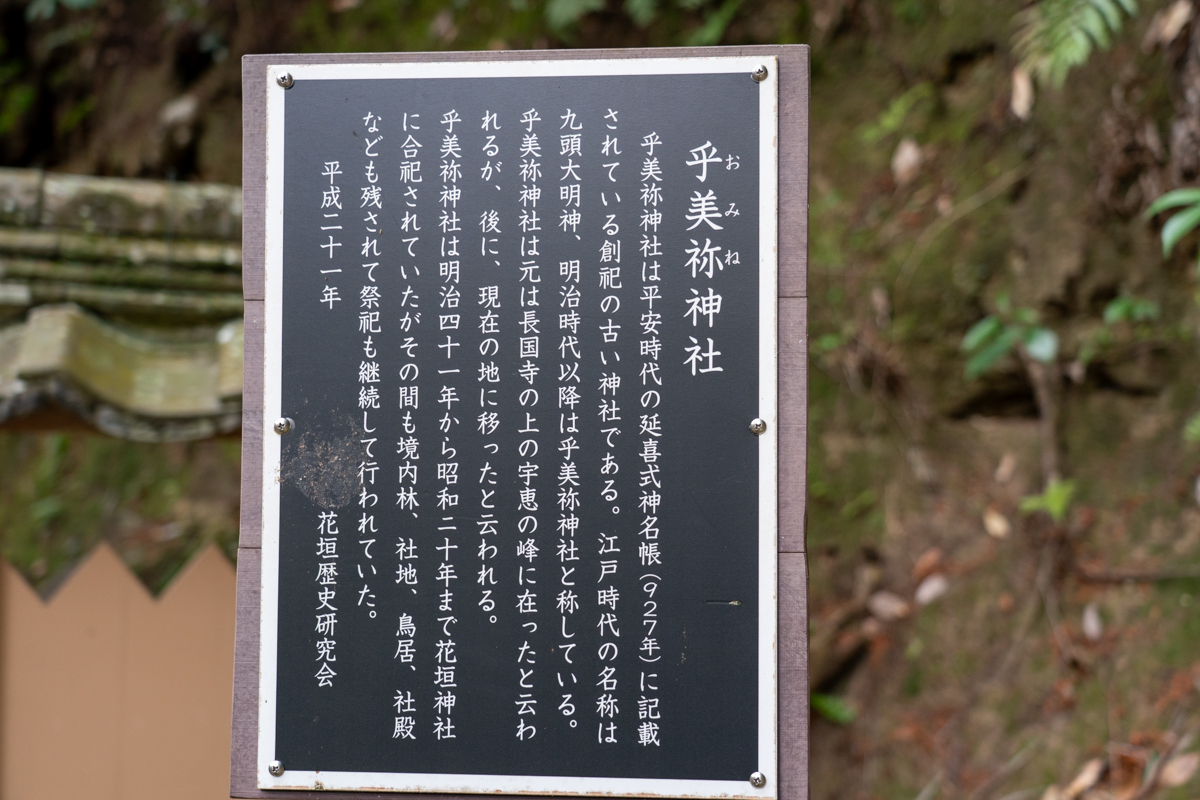 乎美祢神社
おみね
乎美祢神社は平安時代の延喜式神名帳(927年)に記載
されている創祀の古い神社である。江戸時代の名称は
九頭大明神、明治時代以降は乎美祢神社と称している。
乎美祢神社は元は長国寺の上の宇恵の峰に在ったと云わ
れるが、後に、現在の地に移ったと云われる。
乎美祢神社は明治四十一年から昭和二十年まで花垣神社
に合祀されていたがその間も境内林、社地、鳥居、社殿
なども残されて祭祀も継続して行われていた。
平成二十一年 花垣歴史研究会